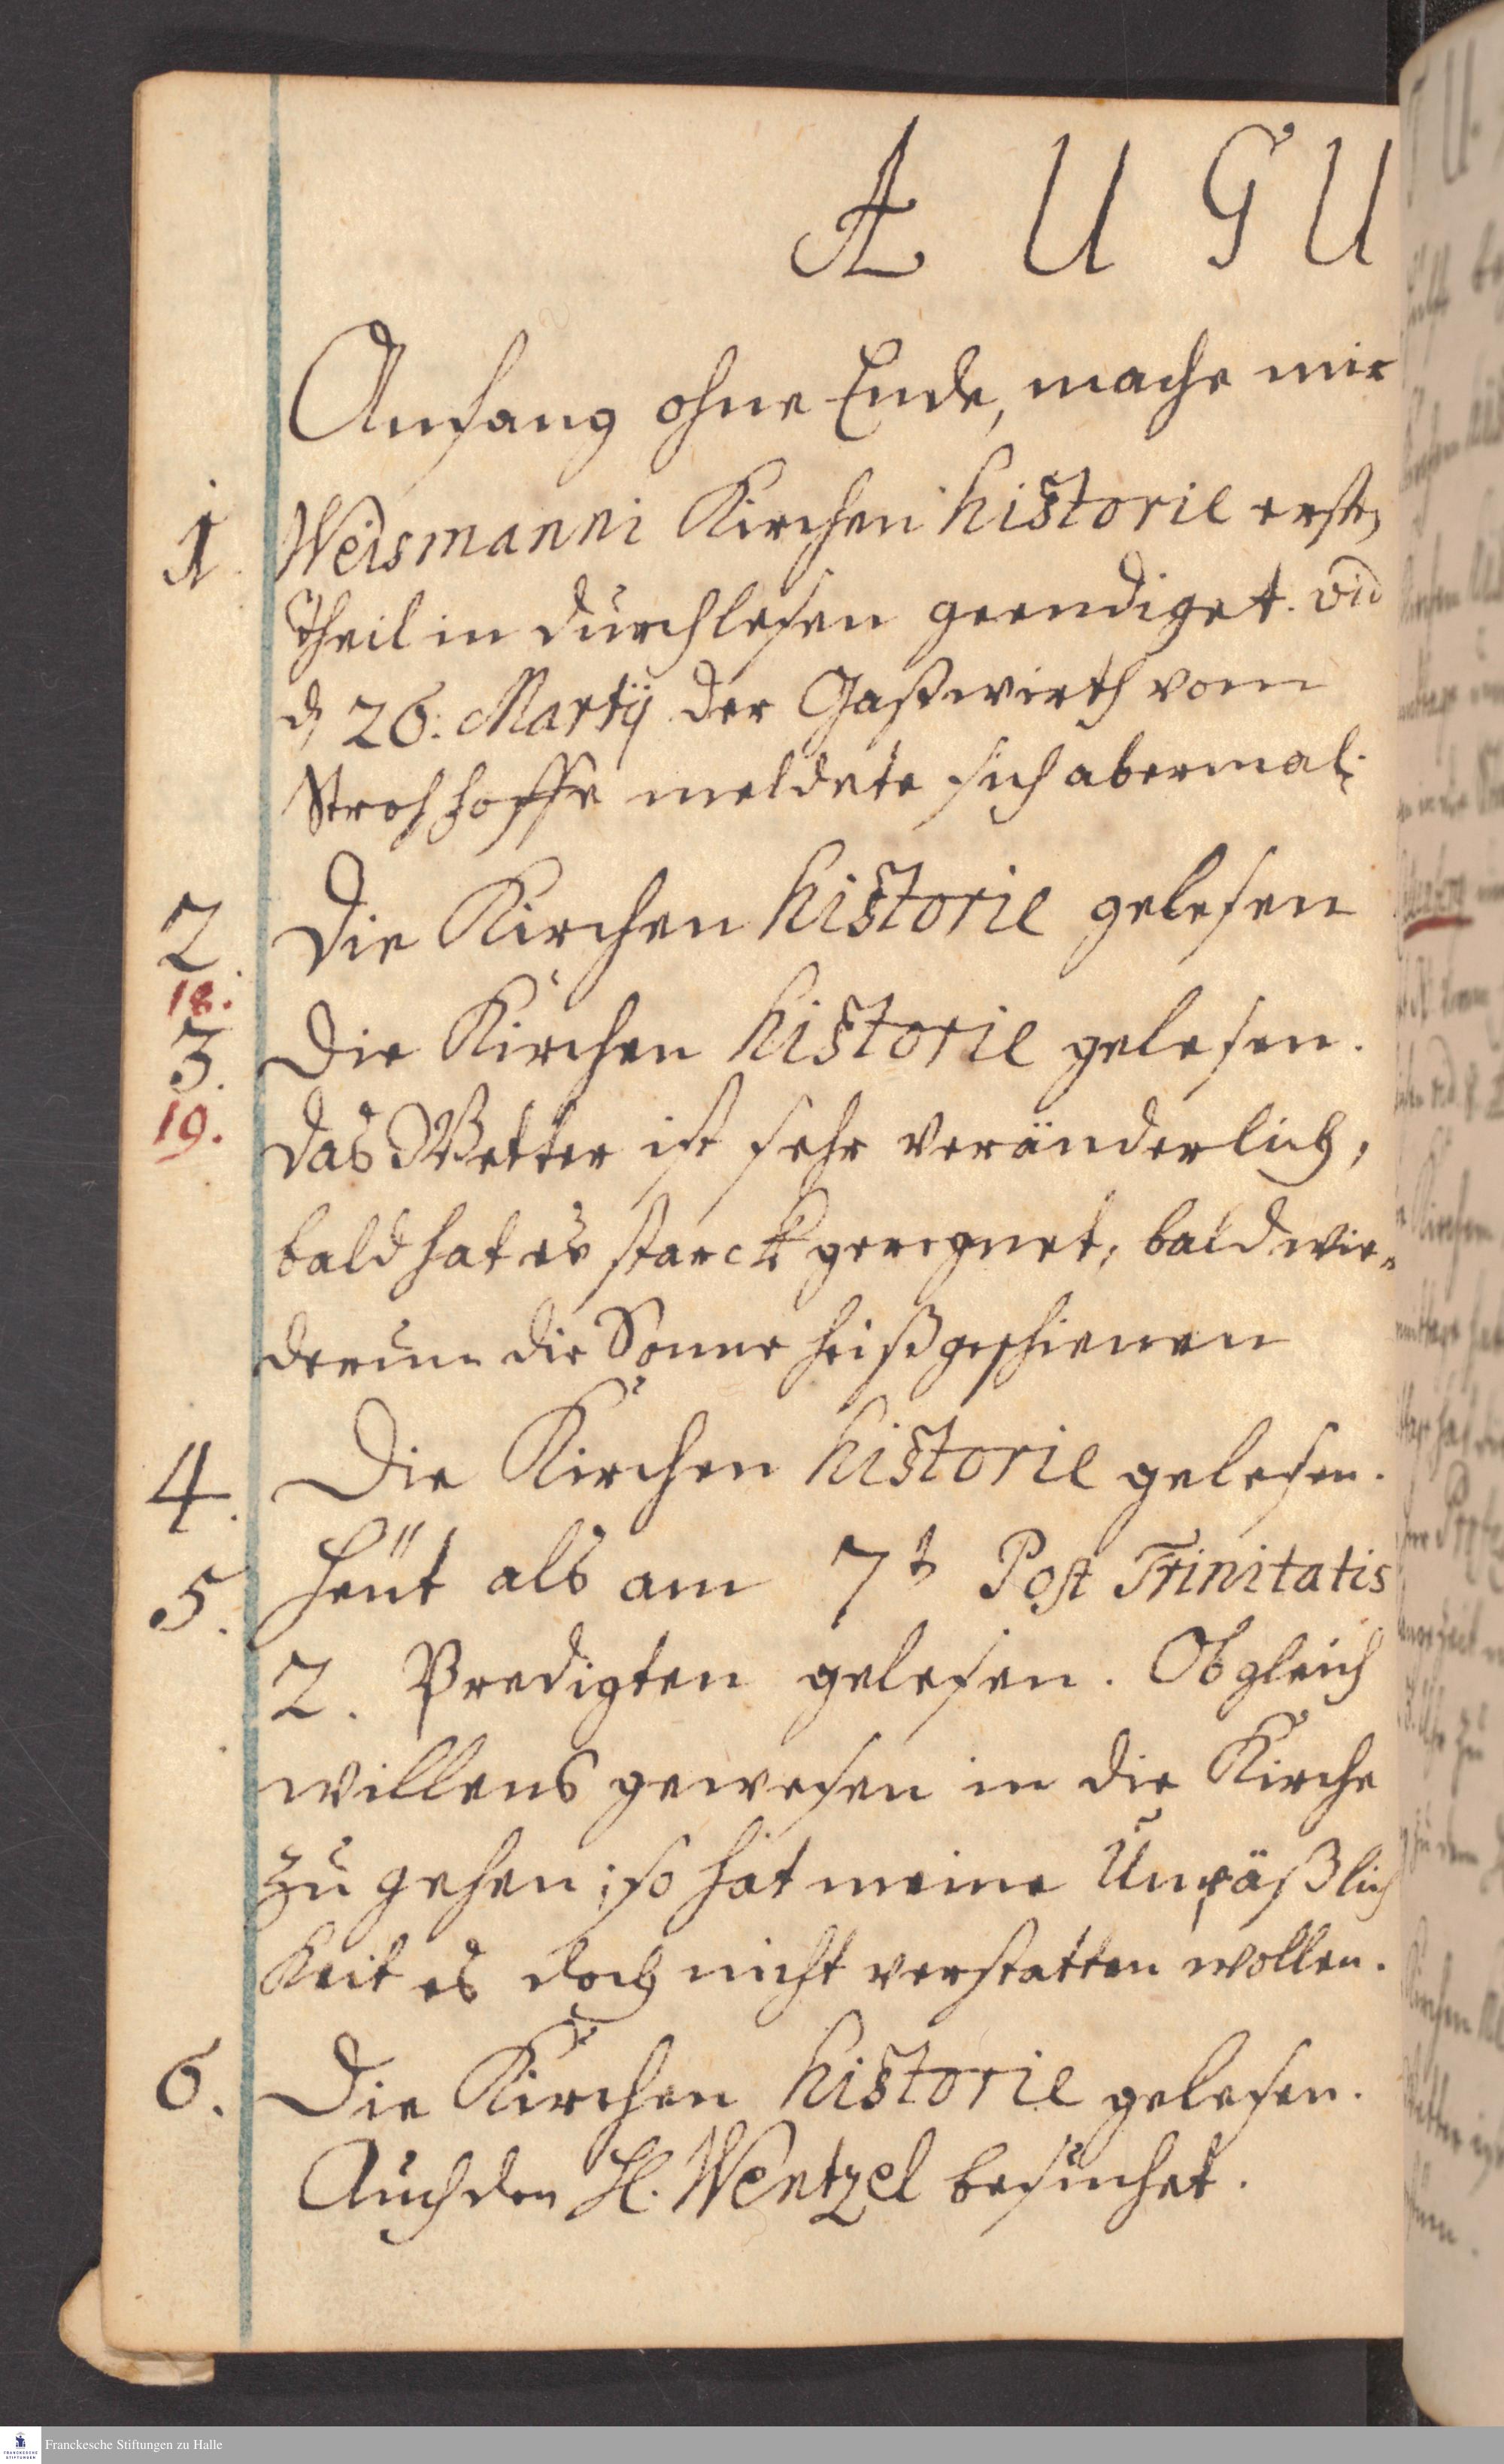 A U G U
Anfang ohne Ende, mache mir
1. Weismanni Kirchen historie ersten
Theil in durchlesen geendiget. vid
d 26. Martij der Gastwirth vom
Strohhoffe meldete sich abermal.
2 Die Kirchen historie gelesen
18.
3. Die Kirchen historie gelesen.
19. das Wetter ist sehr veränderlich,
bald hat es starck geregnet, bald wie-
derum die Sonne heiß geschienen
4. Die Kirchen historie gelesen.
5. Heüt als am 7t Post Trinitatis
2. Predigten gelesen. Obgleich
willens gewesen in die Kirche
zu gehen; so hat meine Unpäßlich
keit es doch nicht verstatten wollen.
6. Die Kirchen historie gelesen.
Auch den H. Wentzel besuchet.
FRANCKESCHE STIFTUNGEN
Franckesche Stiftungen zu Halle